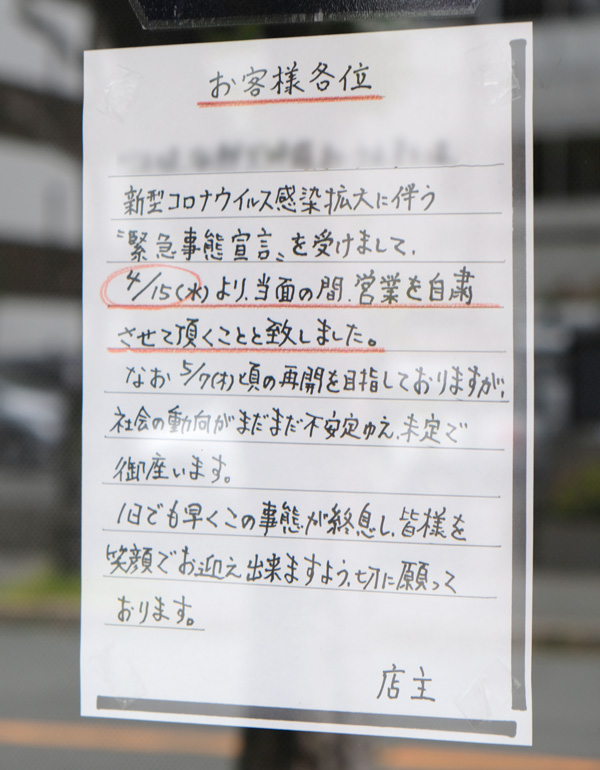 お客様各位
新型コロナウイルス感染拡大に伴う
〝緊急事態宣言〟を受けまして、
4/15(水)より、当面の間、営業を自粛
させて頂くことと致しました。
なお 5/7(木)頃の再開を目指しておりますが、
社会の動向がまだまだ不安定ゆえ、未定で
御座います。
1日でも早くこの事態が終息し、皆様を
笑顔でお迎え出来ますよう、切に願って
おります。
店主